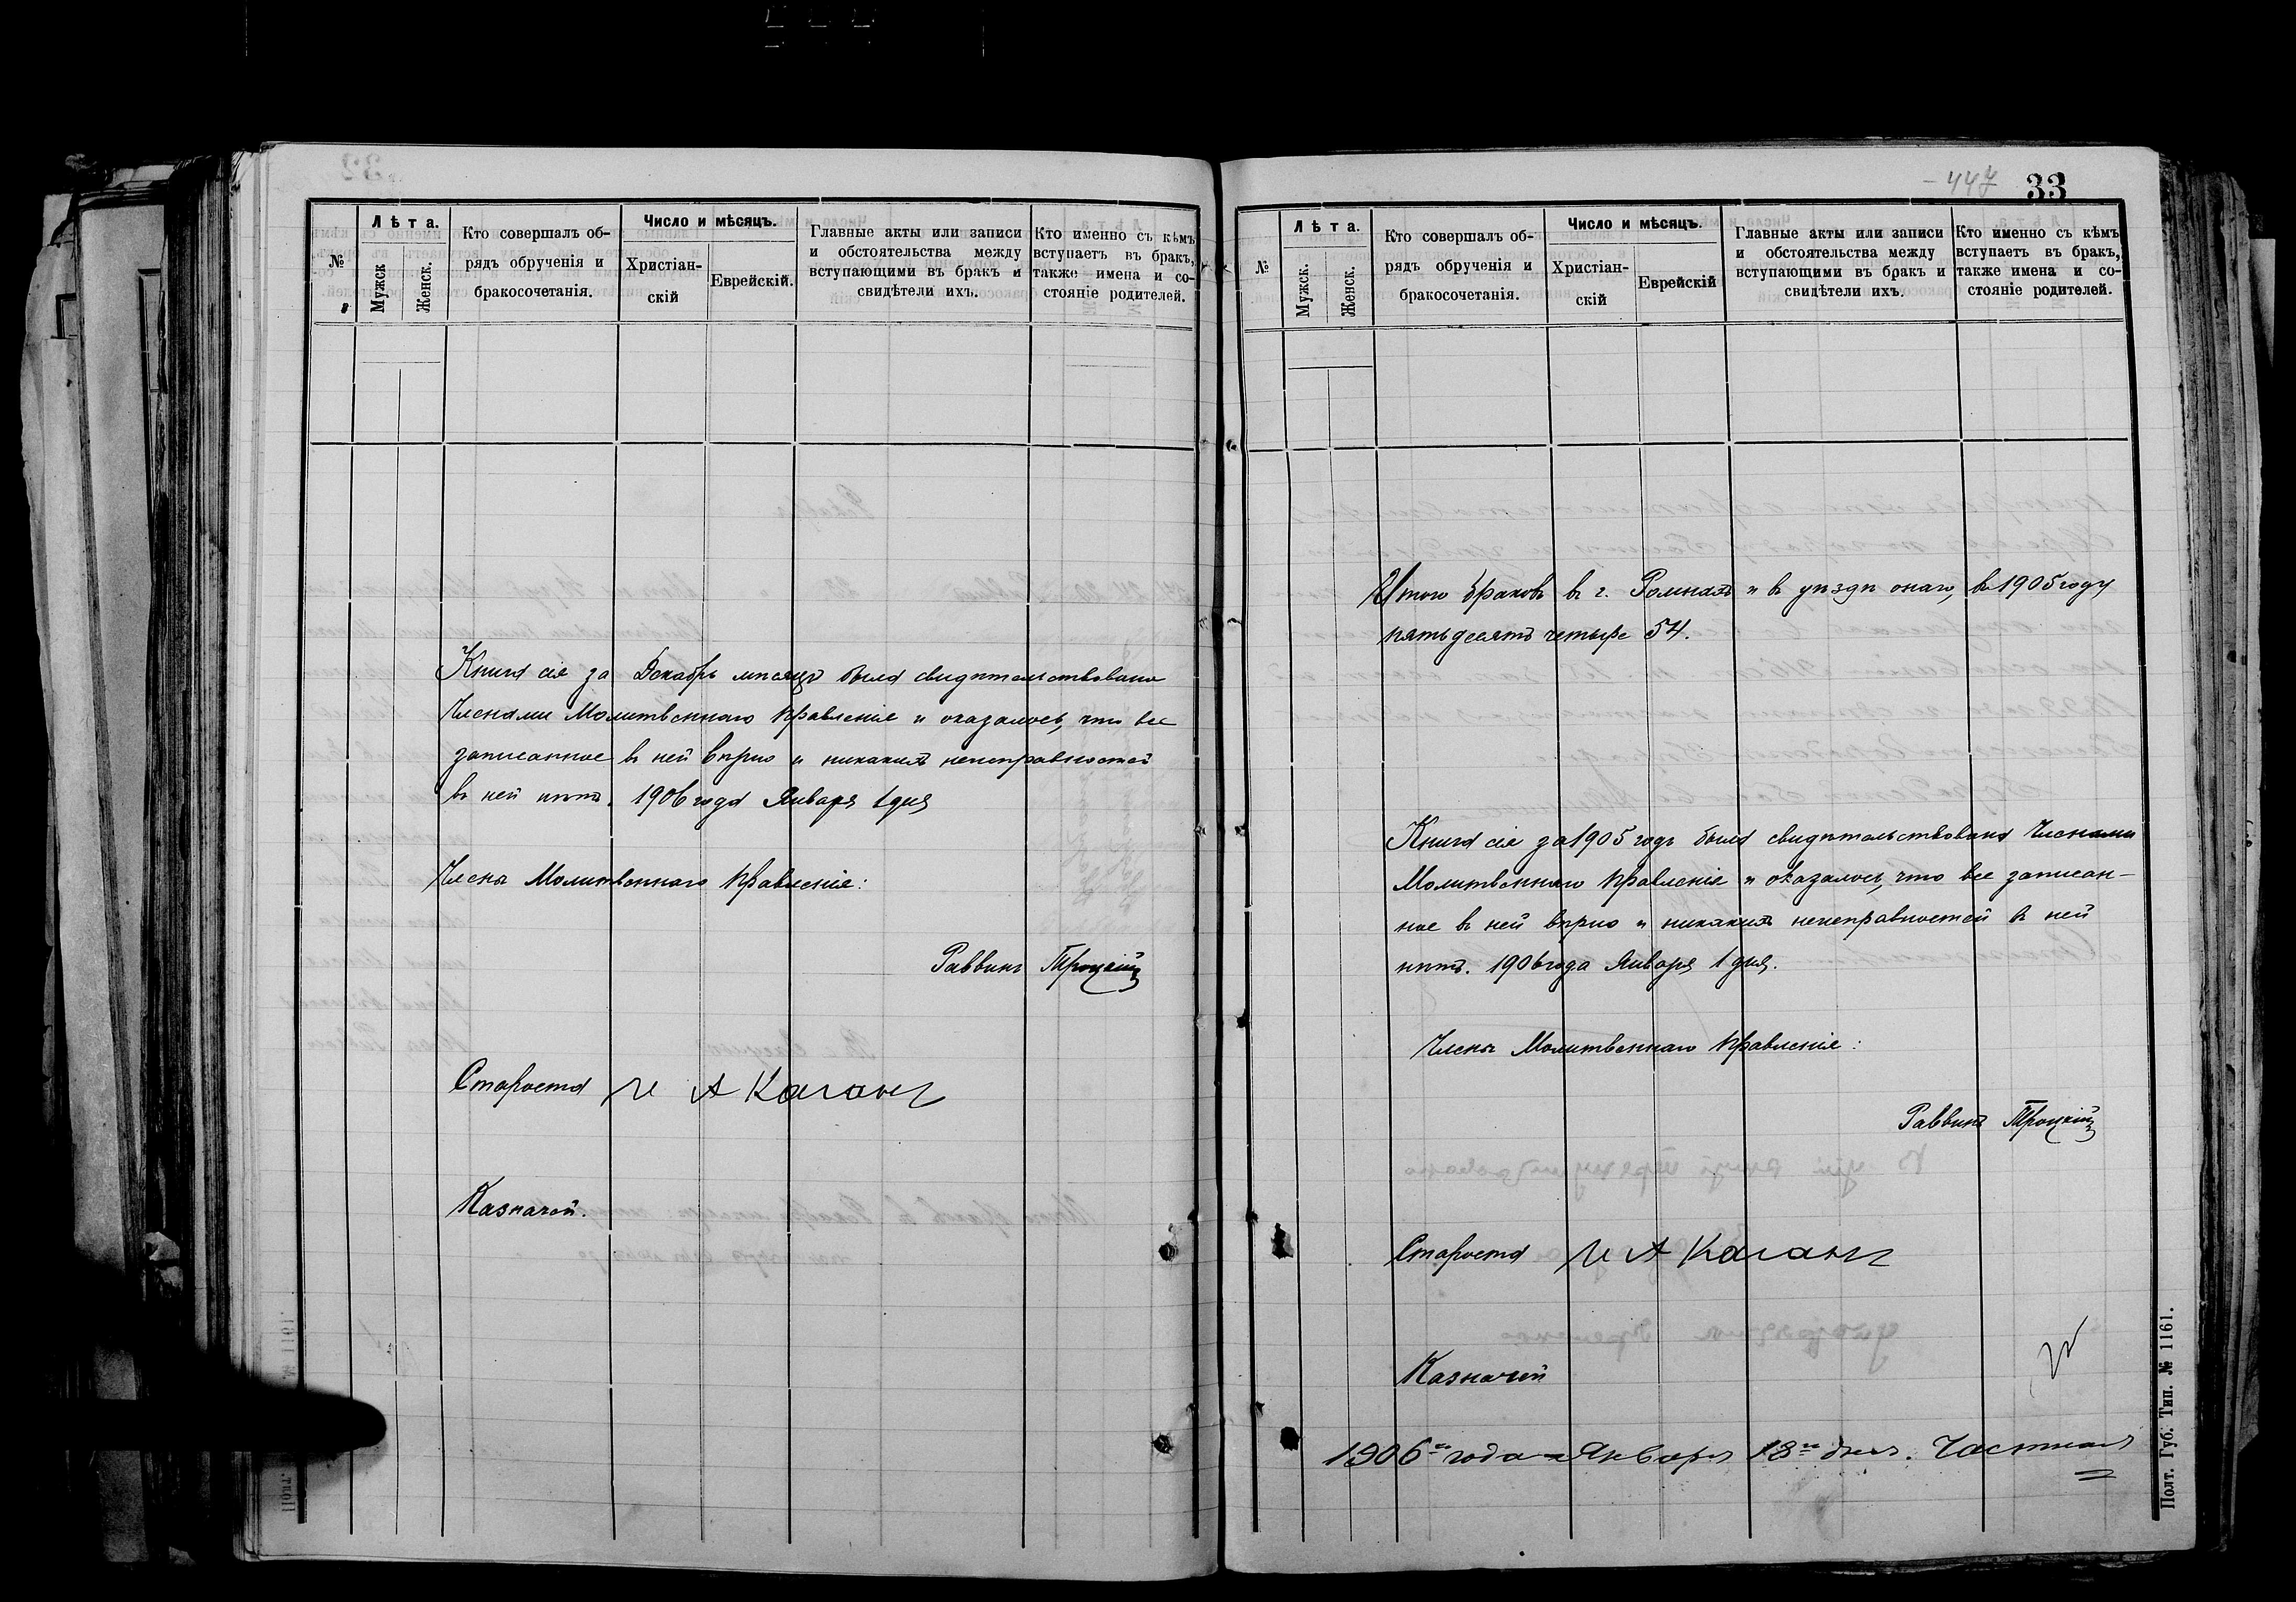 №
Лѣта.
Мужск
Женск.
Кто совершалъ об-
рядъ обрученія и
бракосочетанія.
Число и мѣсяцъ.
Христіан-
скій
Еврейскій.
Главные акты или записи
и обстоятельства между
вступающими въ бракъ и
свидѣтели ихъ.
Кто именно съ кѣмъ
вступаетъ въ бракъ,
также имена и со-
стояніе родителей.
Книга сія за Декабрь мѣсяцъ была свидѣтельствована
Членами Молитвеннаго Правленія и оказалось, что все
записанное въ ней вѣрно и никакихъ неисправностей
въ ней нѣтъ. 1906 года Января 1 дня
Члены Молитвеннаго Правленія:
Раввинъ Троцкій
Староста И А Каганъ
Казначей.
447 33
№
Лѣта.
Мужск.
Женск.
Кто совершалъ об-
рядъ обрученія и
бракосочетанія.
Число и мѣсяцъ.
Христіан-
скій
Еврейскій
Главные акты или записи
и обстоятельства между
вступающими въ бракъ и
свидѣтели ихъ.
Кто именно съ кѣмъ
вступаетъ въ бракъ,
также имена и со-
стояніе родителей.
Итого браковъ въ г. Ромнахъ и въ уѣздѣ онаго, въ 1905 году
пятьдесятъ четыре 54.
Книга сія за 1905 годъ была свидѣтельствована Членами
Молитвеннаго Правленія и оказалось, что все записан-
ное въ ней вѣрно и никакихъ неисправностей въ ней
нѣтъ. 1906 года Января 1 дня.
Члены Молитвеннаго Правленія:
Раввинъ Троцкій
Староста И А Каганъ
Казначей
1906 года Января 18 дня.
Полт. Губ. Тип. № 1161.